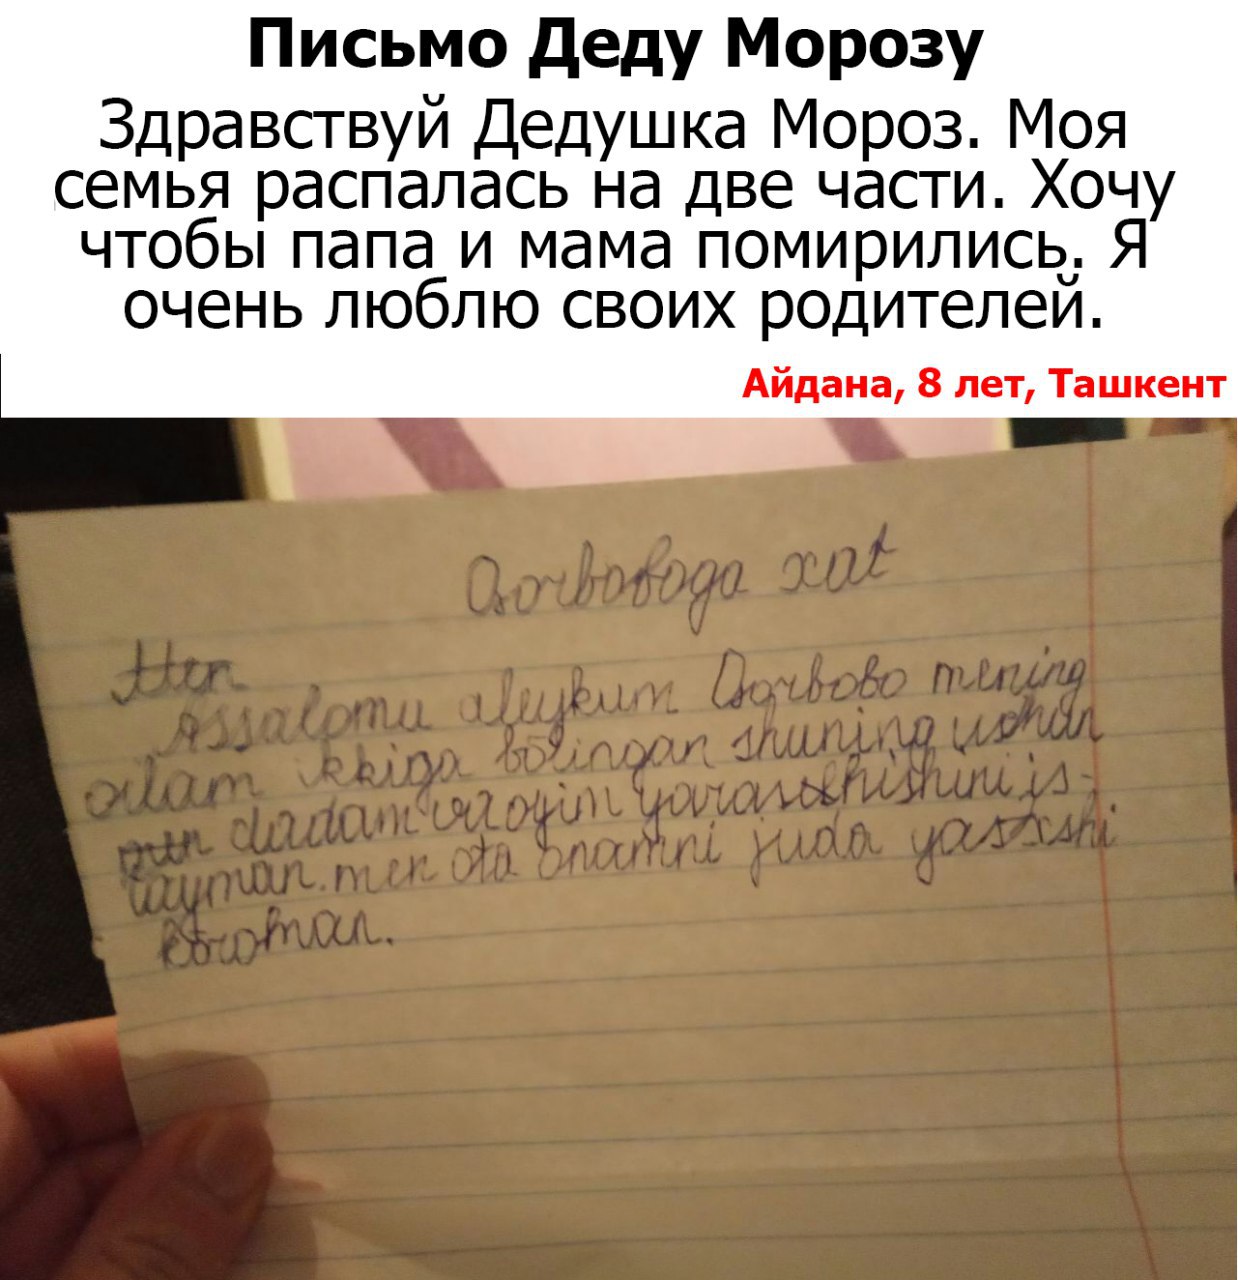 Письмо Деду Морозу
Здравствуй Дедушка Мороз. Моя
семья распалась на две части. Хочу
чтобы папа и мама помирились. Я
очень люблю своих родителей.
Айдана, 8 лет, Ташкент
Qorboboga xat
Men
Assalomu aleykum Qorbobo mening
oilam ikkiga bõlingan shuning uchun
dadam va oyim yarashishini is-
tayman. men ota onamni juda yaxshi
kõroman.